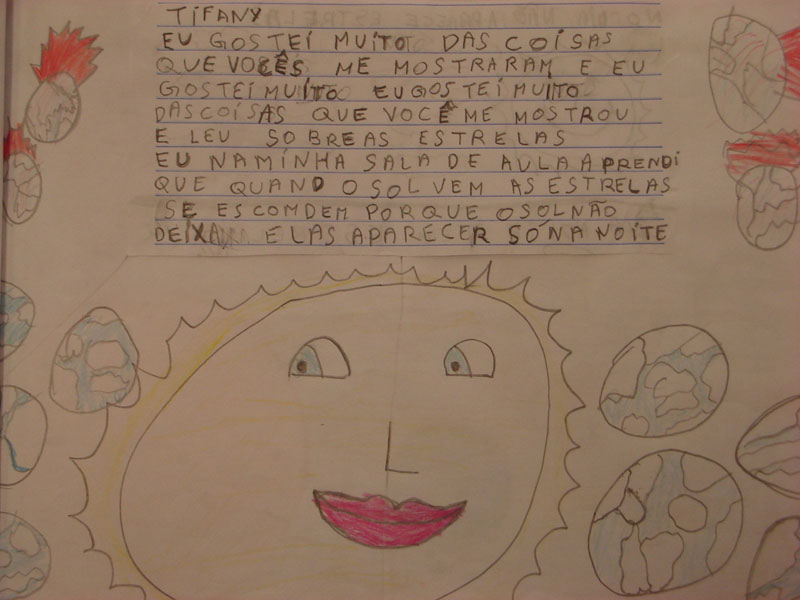 TIFANY
EU GOSTEI MUITO DAS COISAS
QUE VOCÊS ME MOSTRARAM E EU
GOSTEI MUITO EU GOSTEI MUITO
DAS COISAS QUE VOCÊ ME MOSTROU
E LEU SOBRE AS ESTRELAS
EU NA MINHA SALA DE AULA APRENDI
QUE QUANDO O SOL VEM AS ESTRELAS
SE ESCOMDEM PORQUE O SOL NÃO
DEIXA ELAS APARECER SÓ NA NOITE